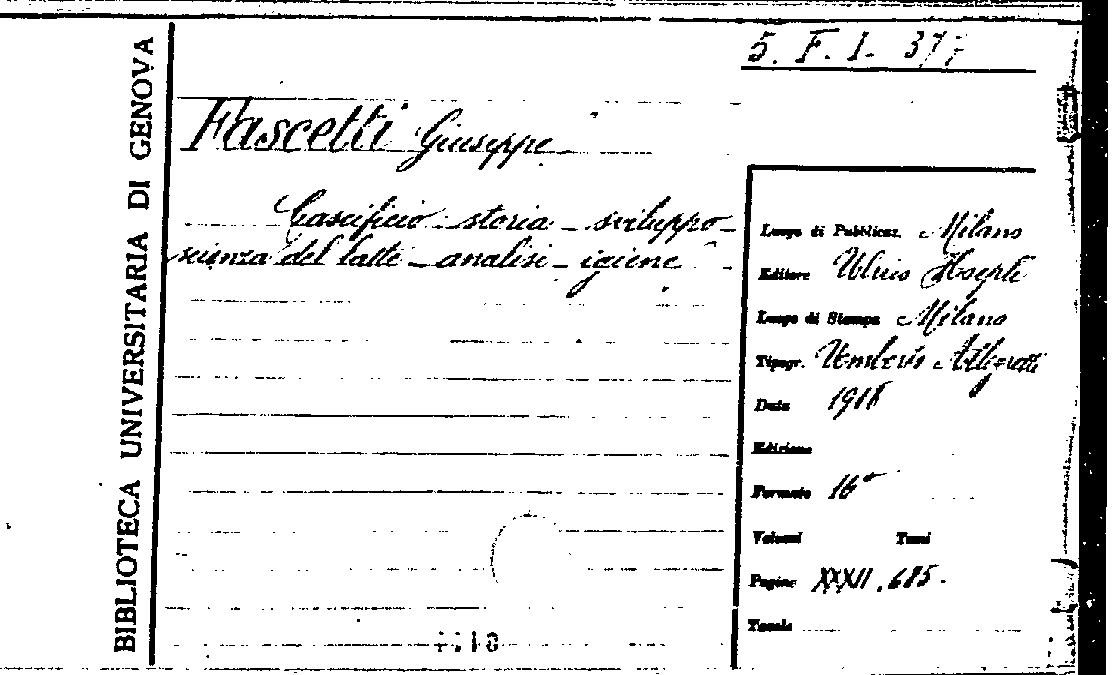 BIBLIOTECA UNIVERSITARIA DI GENOVA
5. F. I. 37
Fascetti Giuseppe
Caseificio - storia - sviluppo -
scienza del latte - analisi - igiene -
Luogo di Pubblicaz. Milano
Editore Ulrico Hoepli
Luogo di Stampa Milano
Tipogr. Umberto Allegretti
Data 1918
Edizione
Formato 16°
Volumi Tomi
Pagine XXXII, 685.
Tavole